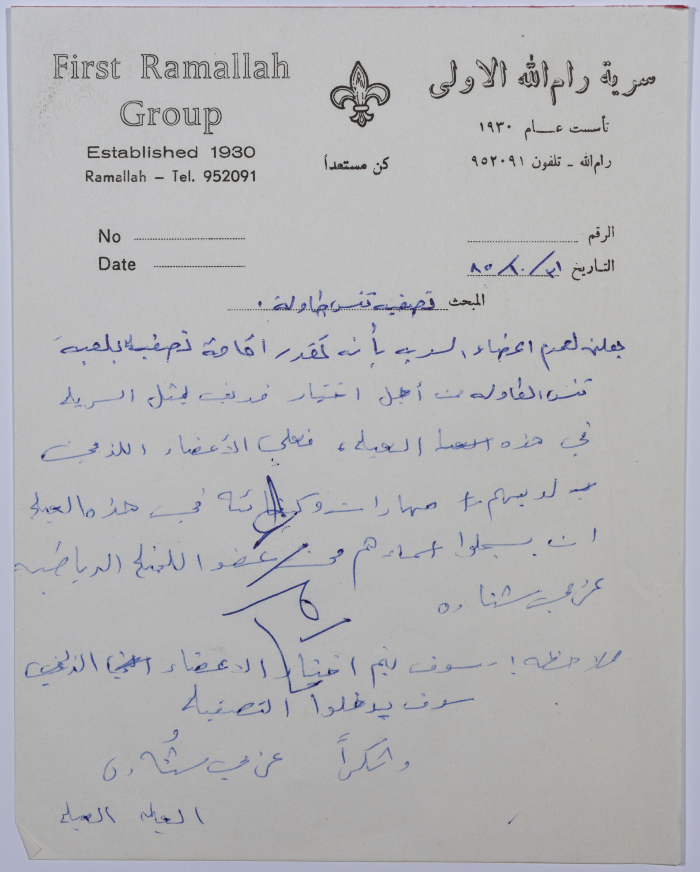 First Ramallah
Group
Established 1930
Ramallah – Tel. 952091
كن مستعداً
سرية رام الله الاولى
تأسست عـــام ١٩٣٠
رام الله ـ تلفون ٩٥٢٠٩١
No
Date
الرقم
التاريخ ٣١/١٠/٨٥
المبحث تصفية تنس طاولة .
يعلن لعموم اعضاء السريه بأنه تقدر اقامة تصفية بلعبة
تنس الطاوله من أجل اختيار فريق يمثل السرية
في هذه اللعبة ، فعلى الأعضاء اللذين
لديهم مهارات في هذه اللعبة
ان يسجلوا اسماءهم عضو اللجنة الرياضيه
عزمي شناره
ملاحظه :- سوف يتم اختيار الاعضاء الذين
سوف يدخلوا التصفية
وشكراً عزمي شناره